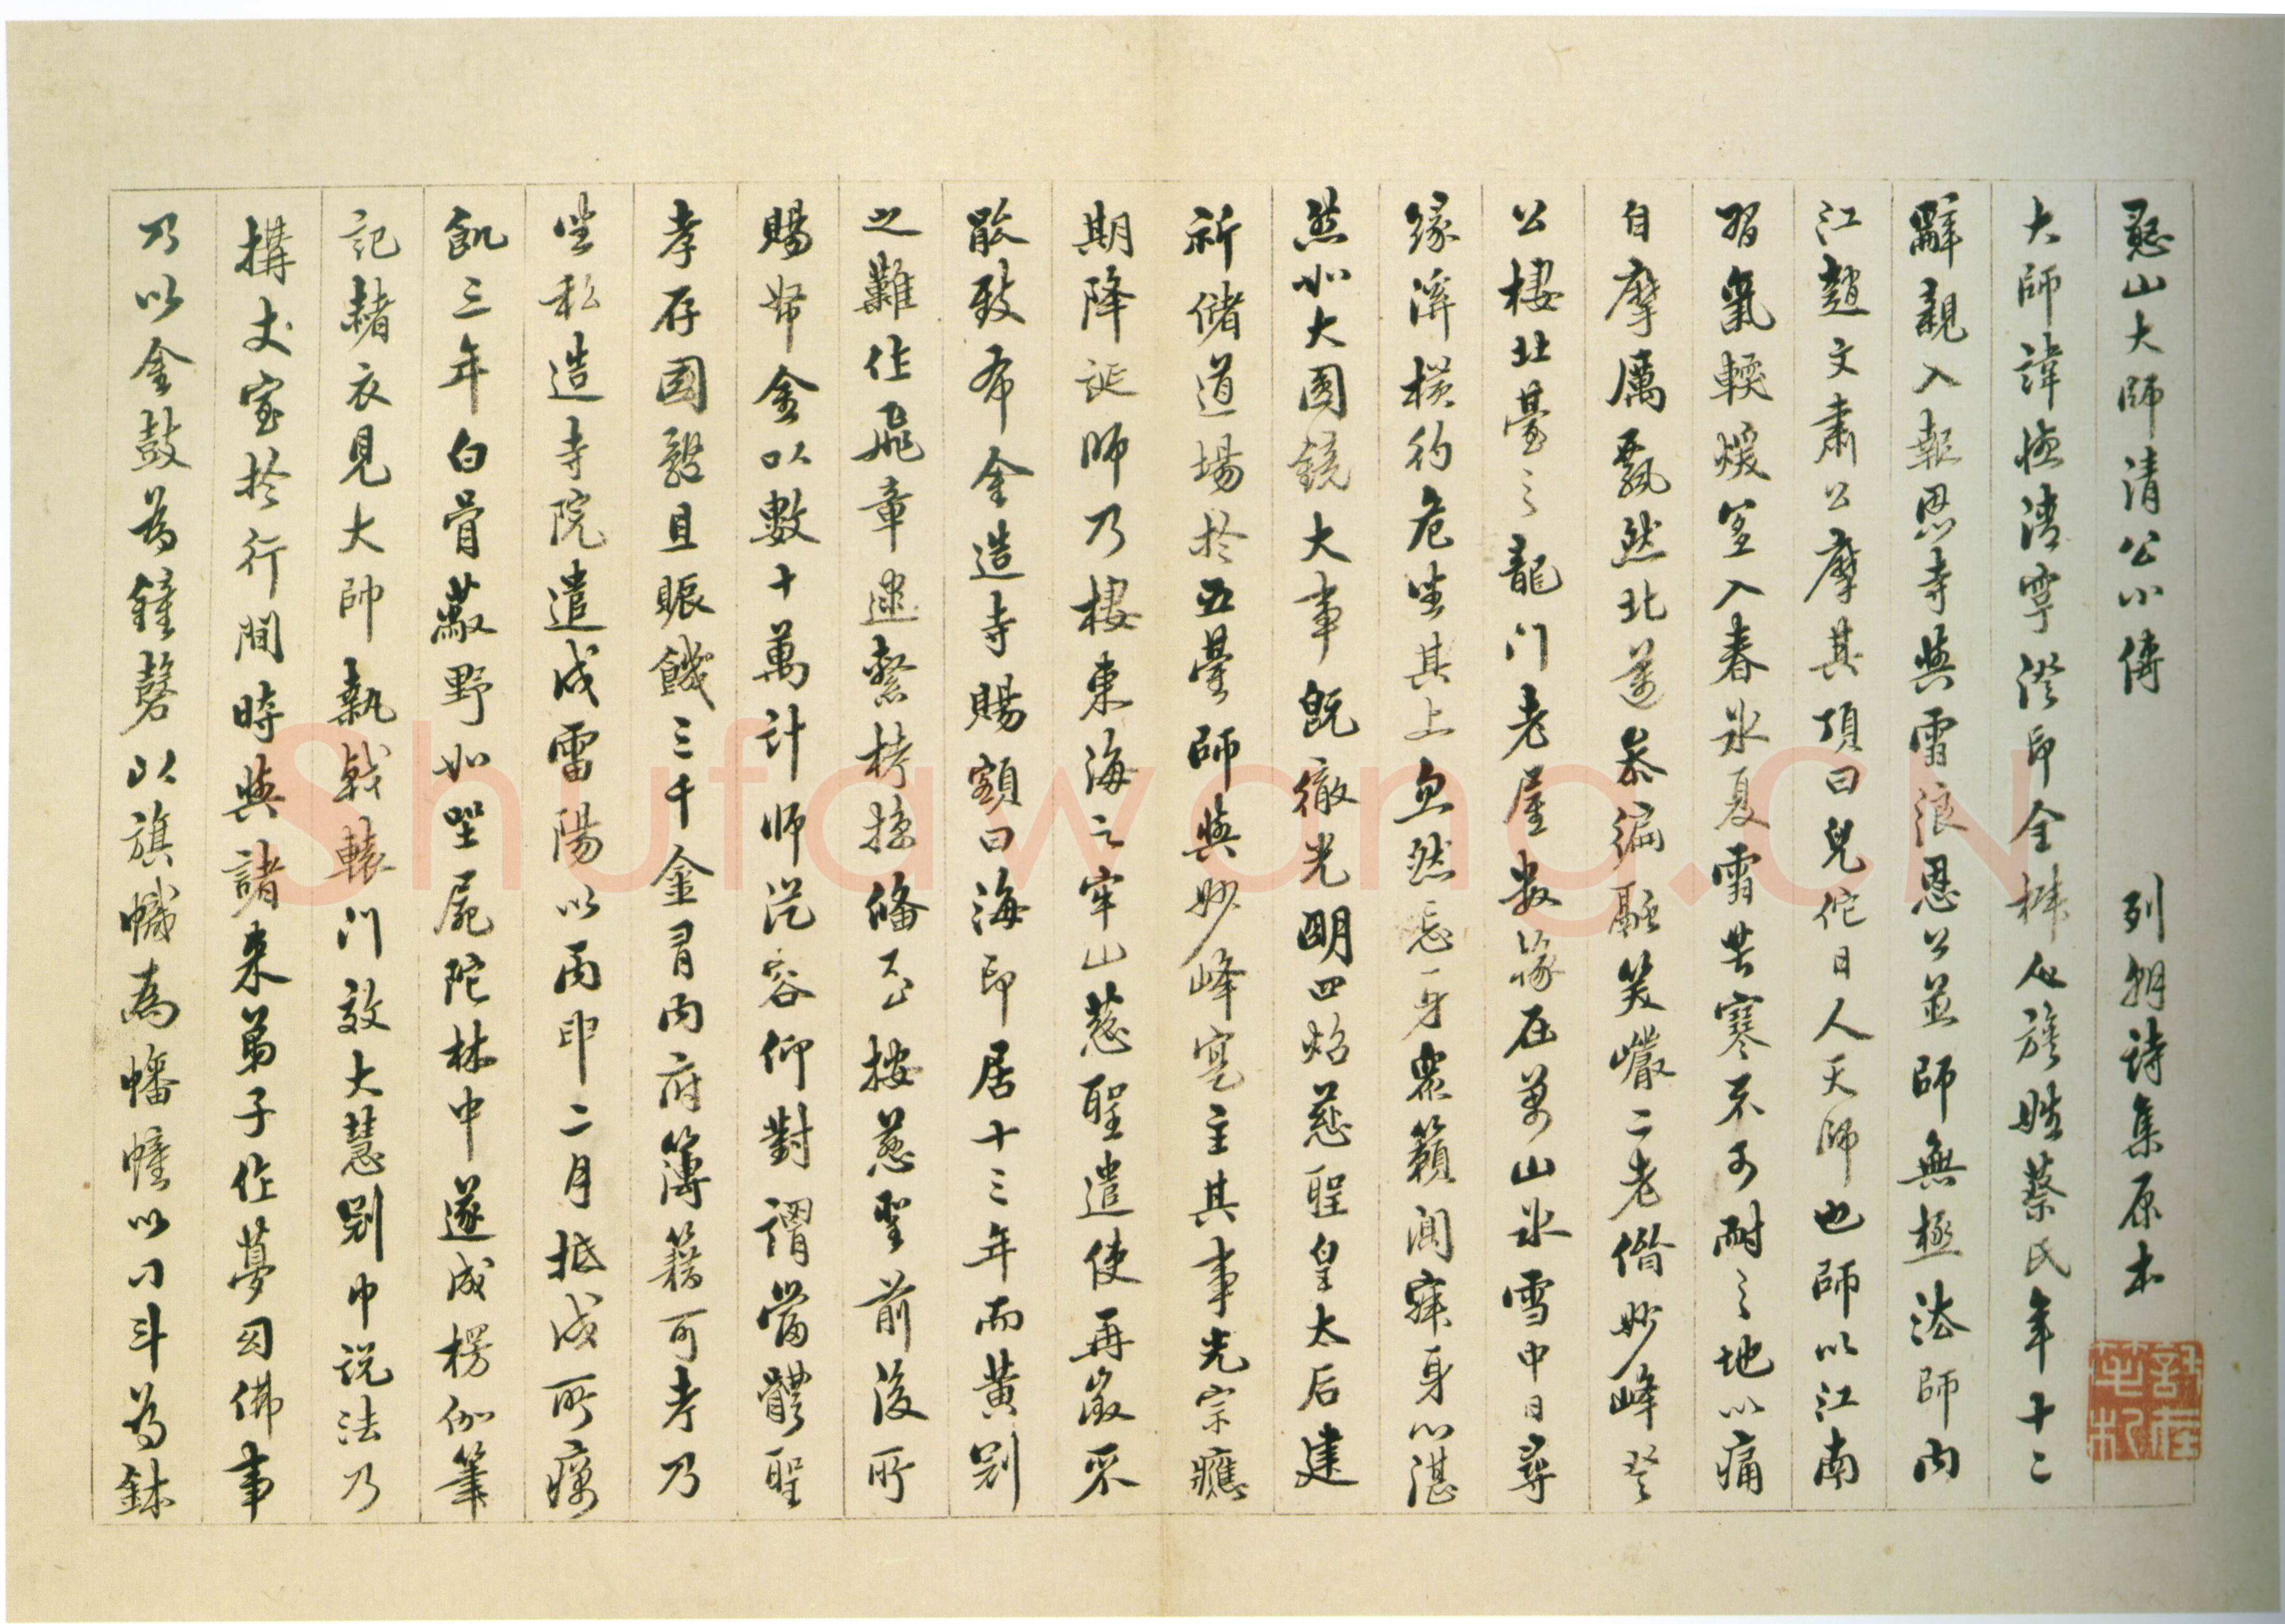 憨山大師清公小傳　　列朝詩集原本
大師諱德清字澄印全椒人族姓蔡氏年十二
辭親入報恩寺與雪浪恩公並師無極法師內
江趙文肅公摩其頂曰兒佗日人天師也師以江南
習氣輭煖宜入春冰夏雪苦寒不可耐之地以痛
自摩厲飄然北邁參徧融笑巖二老偕妙峰登
公棲北臺之龍門老屋數椽在萬山冰雪中日尋
緣溪橫彴危坐其上忽然忘身衆籟闃寂身心湛
然如大圓鏡大事旣徹光明四炤慈聖皇太后建
祈儲道場於五臺師與妙峰寔主其事光宗應
期降誕師乃棲東海之牢山慈聖遣使再徵不
能致布金造寺賜額曰海印居十三年而黃冠
之難作飛章逮繫拷掠備至按慈聖前後所
賜帑金以數十萬計师從容仰對謂當體聖
孝存國體且賑饑三千金有內府簿籍可考乃
坐私造寺院遣戍雷陽以丙申二月抵戍所癘
飢三年白骨蔽野如坐屍陀林中遂成楞伽筆
記赭衣見大帥執戟轅門效大慧冠巾說法乃
構丈室於行間時與諸來弟子作夢幻佛事
乃以金鼓為鐘磬以旗幟為幡幢以刁斗為鉢
許在
屯村
Shufawang.CN